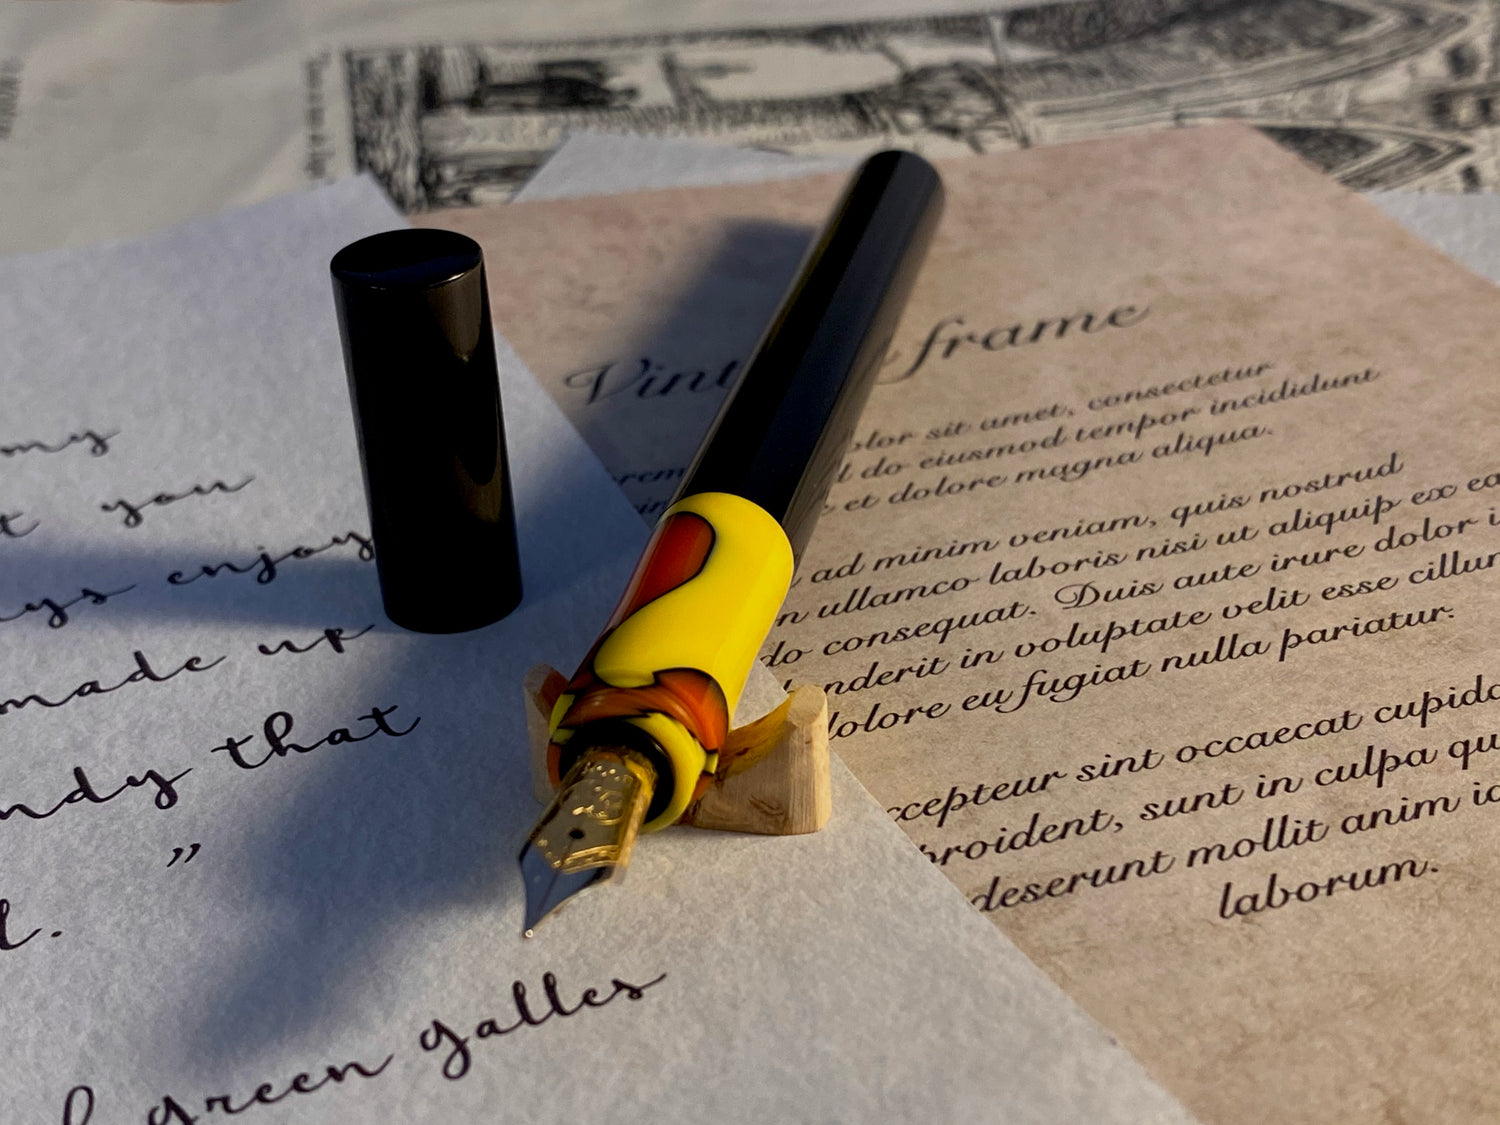 my
t you
ys enjoy
made up
ndy that
”
l.
green galles
Vint frame
orem olor sit amet, consectetur
do eiusmod tempor incididunt
et dolore magna aliqua.
ad minim veniam, quis nostrud
n ullamco laboris nisi ut aliquip ex ea
do consequat. Duis aute irure dolor i
nderit in voluptate velit esse cillum
dolore eu fugiat nulla pariatur.
ccepteur sint occaecat cupida
proident, sunt in culpa qu
deserunt mollit anim id
laborum.